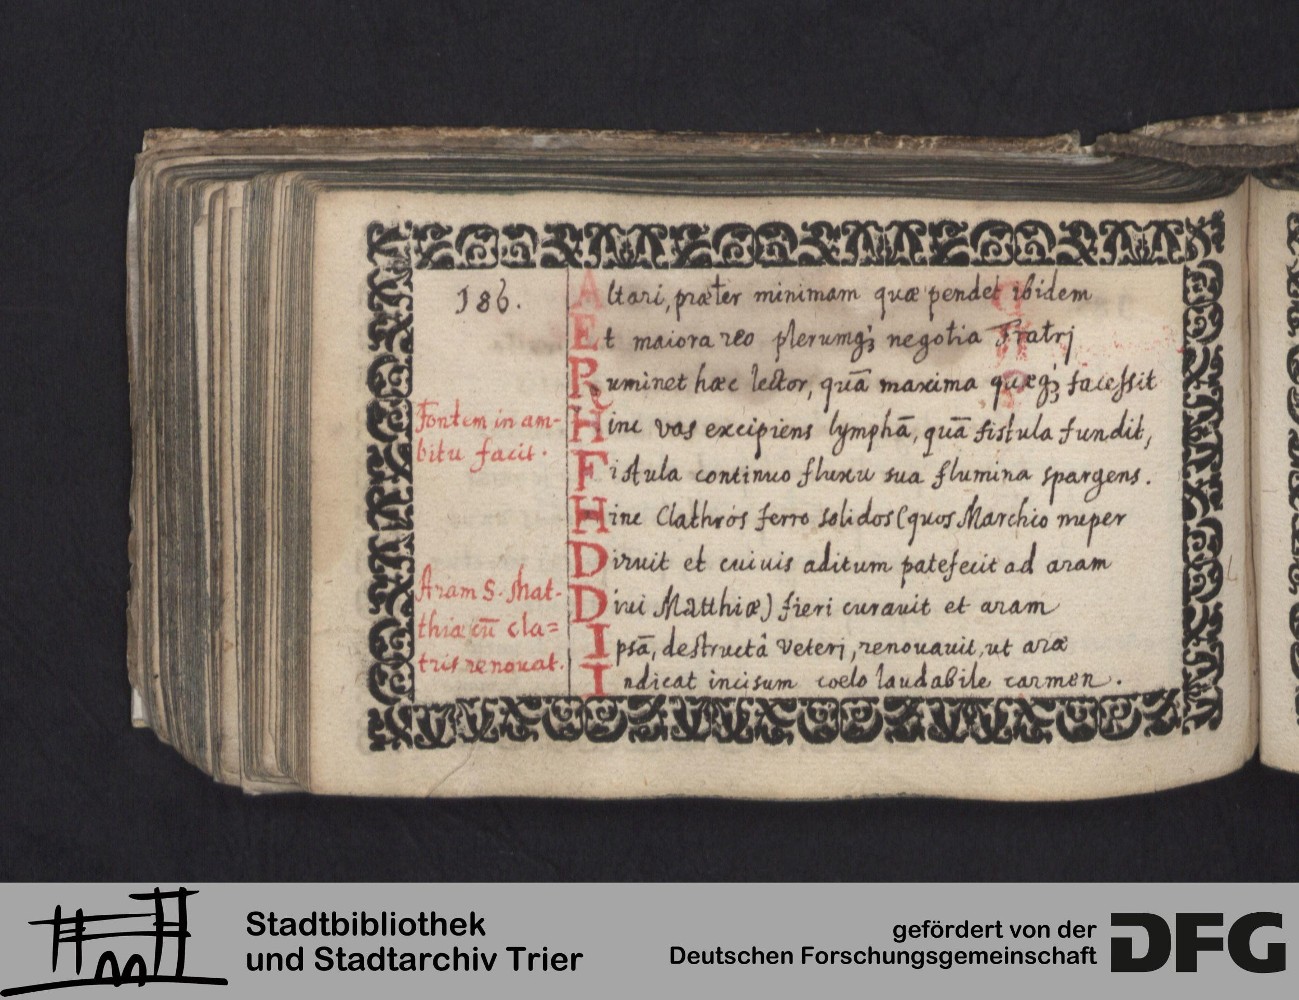 186.
Altari, præter minimam quæ pendet ibidem
Et maiora reo plerumq; negotia Fratrj
Ruminet hæc lector, quã maxima quæq; facessit
Fontem in am-
bitu facit.
Hinc vas excipiens lymphã, quã fistula fundit,
Fistula continuo fluxu sua flumina spargens.
Hinc Clathros ferro solidos (quos Marchio nuper
Diruit et cuiuis aditum patefecit ad aram
Aram S. Mat-
thiæ cũ cla=
tris renouat.
Diui Matthiæ) fieri curauit et aram
Ipsã, destructâ veterj, renouauit, ut aræ
Indicat incisum coelo laudabile carmen.
Stadtbibliothek
und Stadtarchiv Trier
gefördert von der
Deutschen Forschungsgemeinschaft
DFG